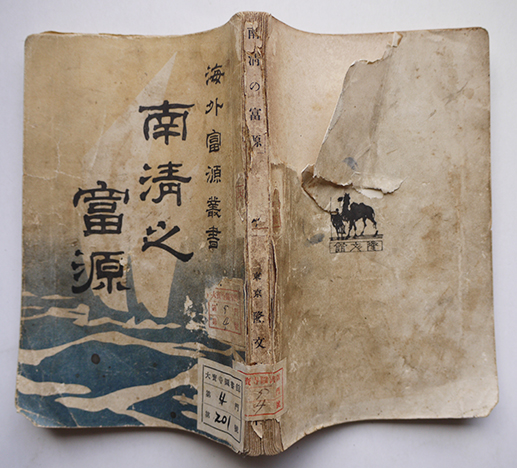 海外富源叢書
南清之
富源
南清の富原
東京 隆文
隆文館
第 4 門
第 201 號